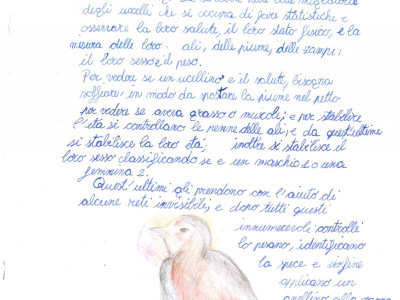 degli uccelli che si occupa di fare statistiche e
osservare la loro salute, il loro stato fisico, e la
misura delle loro: ali, delle piume, delle zampe;
il loro sesso e il peso.
Per vedere se un uccellino è il salute, bisogna
soffiare in modo da spostare la piume nel petto
per vedere se avera grasso o muscoli; e per stabilire
l'età si controllano le penne delle ali; e da quest'ultime
si stabilisce la loro età; inoltre si stabilisce il
loro sesso classificando se e un maschio 1 o una
femmina 2.
Quest'ultimi gli prendono con l'aiuto di
alcune reti invisibili; e dopo tutti questi
innumerevoli controlli
lo pesano, identificano
la spece e infine
applicano un
anellino alla